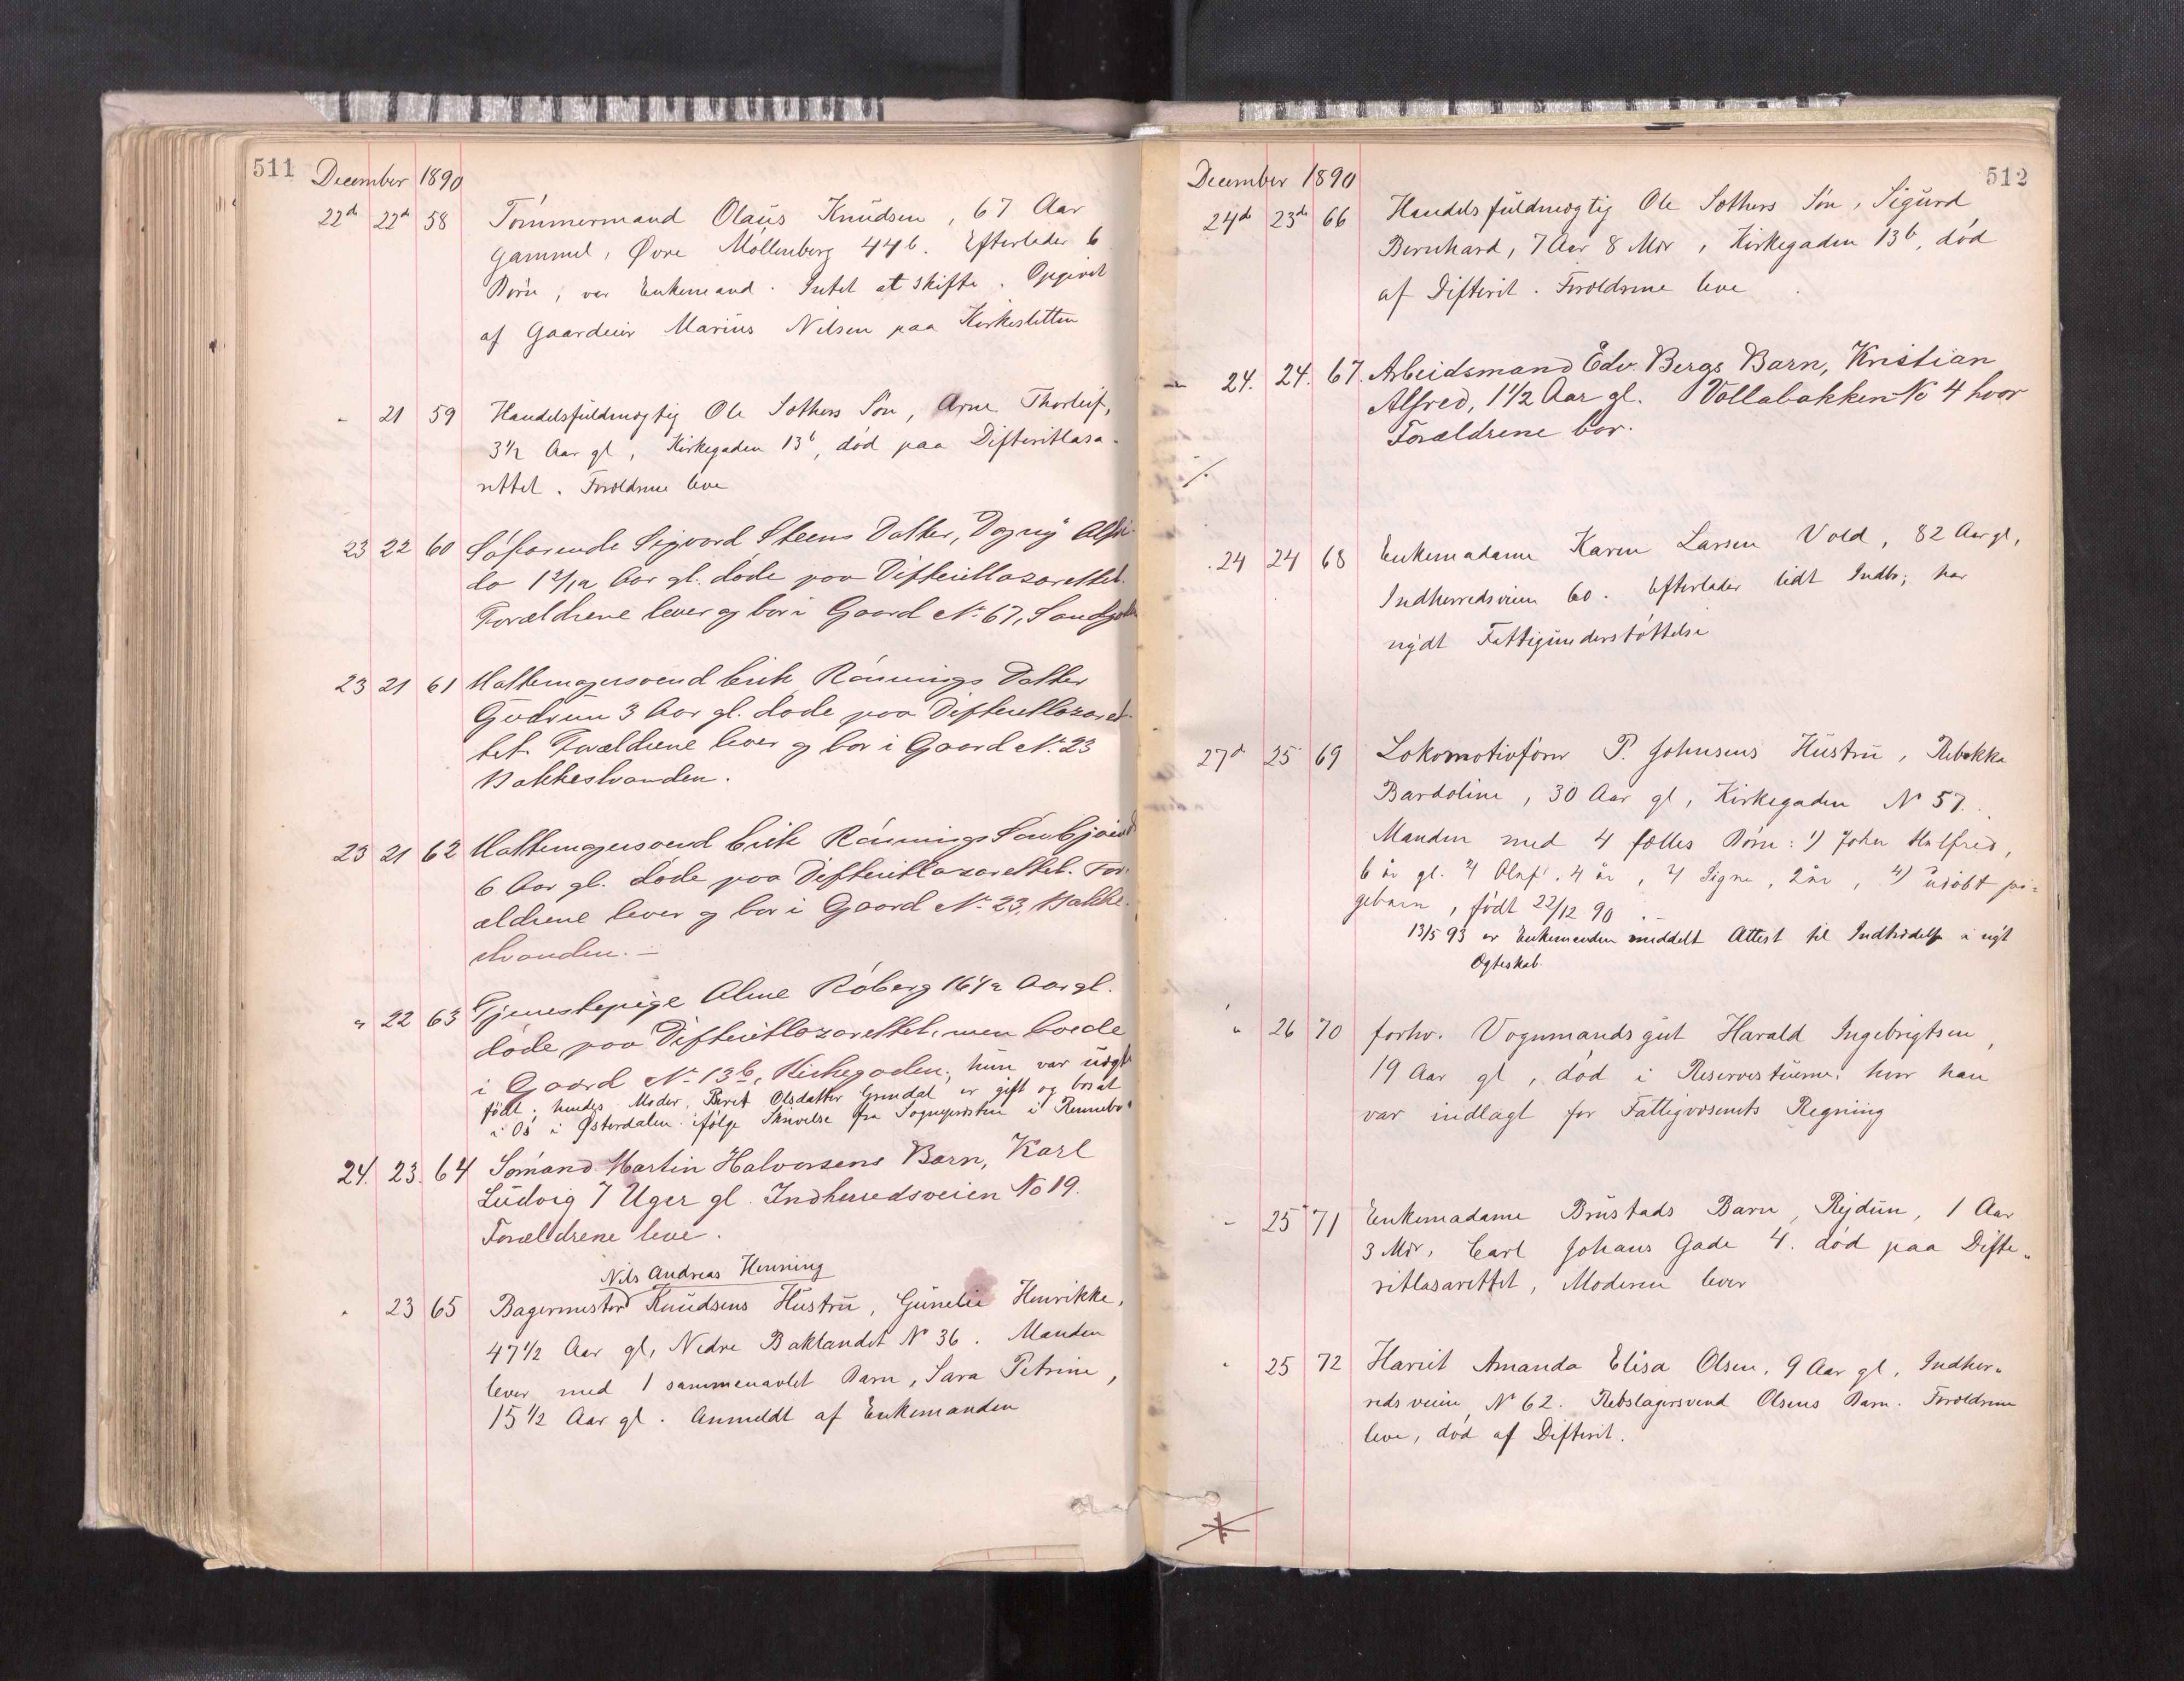 511 December 1890
22de 22de 58 Tömmermand Olaüs Knüdsen, 67 Aar
gammel, Øvre Möllenberg 44b. Efterlader 6
Börn, var Enkemand. Intet at skifte. Opgivet
af Gaardeier Marius Nilsen paa Kirkesletten
- 21 59 Handelsfuldmægtig Ole Sothers Sön, Arne Thorleif,
3 1/2 Aar gl, Kirkegaden 13b, död paa Difteritlasa-
rettet. Forældrene leve
23 22 60 Söfarende Sigvard Steens Datter, Dagny Alfri-
da 1 2/12 Aar gl. döde paa Difteritlazarettet.
Forældrene lever og bor i Gaard No 67, Sandgaden
23 21 61 Mattemagersvend Erik Rönnings Datter
Gudrun 3 Aar gl. döde paa Difteritlazaret-
tet. Forældrene lever og bor i Gaard No 23
Bakkestranden.
23 21 62 Mattemagersvend Erik Rönnings Sön
6 Aar gl. döde paa Difteritlazarettet. For-
ældrene lever og bor i Gaard No 23, Bakke-
stranden. -
" 22 63 Tjenestepige Aline Röberg 16 1/2 Aar gl.
döde paa Difteritlazarettet, men boede
i Gaard No 13b, Kirkegaden; hun var uægte
födt; hendes Moder, Berit Olsdatter Grindal er gift og bosat
i Os i Østerdalen ifölge Skrivelse fra Sognepresten i Rennebo
24. 23. 64 Sömand Martin Halvorsens Barn, Karl
Ludvig 7 Uger gl. Indherredsveien No 19.
Forældrene leve.
Nils Andreas Henning
" 23 65 Bagermester Knudsens Hustru, Gunelie Henrikke,
47 1/2 Aar gl, Nedre Baklandet No 36. Manden
lever med 1 sammenavlet Barn, Sara Petrine,
15 1/2 Aar gl. Anmeldt af Enkemanden
December 1890 512
24de 23de 66 Handelsfuldmægtig Ole Sothers Sön, Sigurd
Bernhard, 7 Aar 8 Mdr, Kirkegaden 13b, död
af Difterit. Forældrene leve.
24. 24. 67. Arbeidsmand Edv. Bergs Barn, Kristian
Alfred, 1 1/2 Aar gl. Vollabakken No 4 hvor
Forældrene bor.
24 24 68 Enkemadame Karen Larsen Vold, 82 Aar gl,
Indherredsveien 60. Efterlader lidt Indbo; har
nydt Fattigunderstöttelse
27de 25 69 Lokomotivförer P. Johnsens Hustru, Rebekka
Bardoline, 30 Aar gl, Kirkegaden No 57.
Manden med 4 fælles Börn: 1) Johan Halfred,
6 år gl. 2) Olaf, 4 år, 3) Signe, 2 år, 4) udöbt pi-
gebarn, födt 22/12 90.
13/5 93 er Enkemanden meddelt Attest til Indtrædelse i nyt
Ægteskab.
" 26 70 forhv. Vognmandsgut Harald Ingebrigtsen,
19 Aar gl, död i Reservestuerne, hvor han
var indlagt for Fattigvæsenets Regning
- 25 71 Enkemadame Brustads Barn, Rejdun, 1 Aar
3 Mdr, Carl Johans Gade 4. död paa Difte-
ritlasarettet, Moderen lever
" 25 72 Hariet Amanda Elisa Olsen, 9 Aar gl, Indher-
redsveien No 62. Rebslagersvend Olsens Barn. Forældrene
leve, död af Difterit.